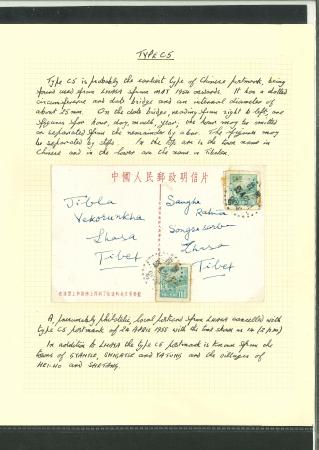 TYPE C5
Type C5 is probably the earliest type of Chinese postmark, being
found used from LHASA from MAY 1954 onwards. It has a dotted
circumference and date bridge and an internal diameter of
about 25 mm. On the date bridge, reading from right to left, are
figures for hour, day, month, year. The hour may be omitted
or separated from the remainder by a bar. The figures may
be separated by dots. In the upper arc is the town name in
Chinese and in the lower arc the name in Tibetan.
中國人民郵政明信片
Jibla
Sangha
Ratna
Lhasa
Lhasa
Tibet
Tibet
A presumably philatelic local postcard from LHASA cancelled with
type C5 postmark of 24 APRIL 1955 with the time shown as 14 (2 pm)
In addition to LHASA the type C5 postmark is known from the
towns of GYANTSE, SHIGATSE and YATUNG and the villages of